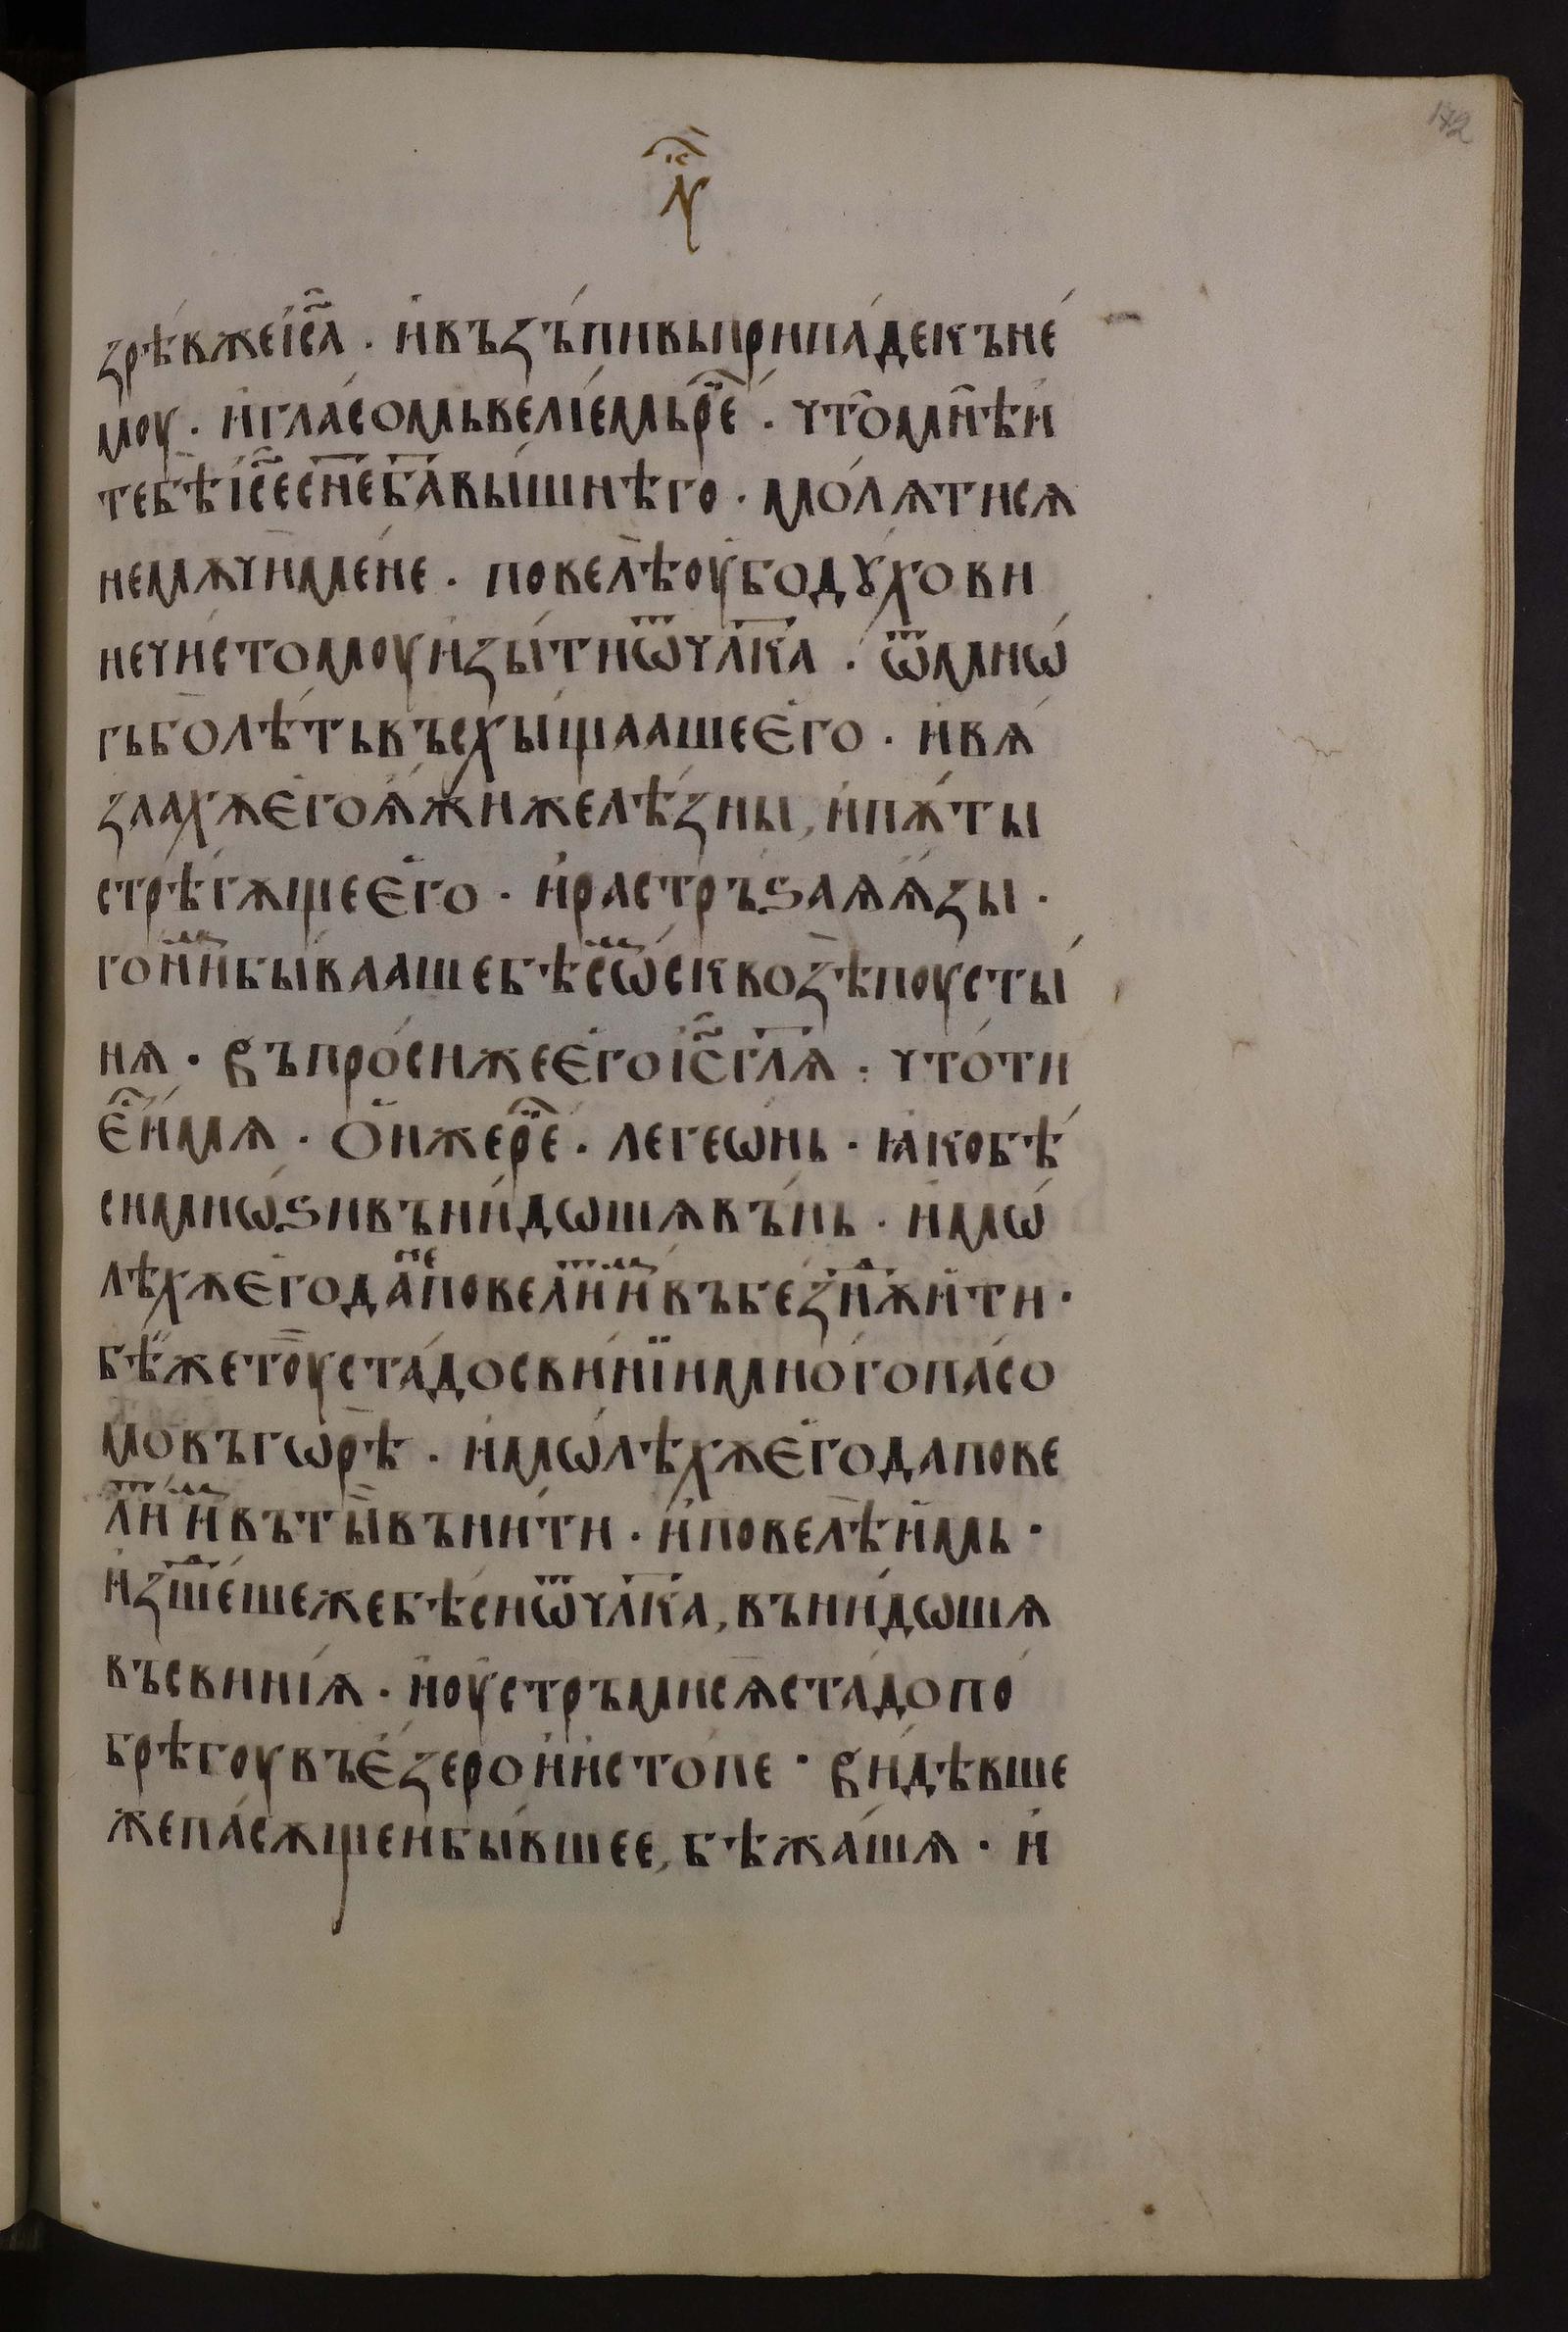 172
н҃ед
зрѣ́вже і҆с҃а · и҆ въз̾ъпивь припа́де къ не́
моу · и҆ гла́сомь ве́лїемь ре҇ · что̀ мнѣ̀ и҆
тебѣ̀ і҆с҃е с҃не б҃а вы́шнѣго · молѧ̀ ти сѧ
не мѫчи мене · повелѣ оубо дꙋ́хови
нечи́стомоу и҆зы́ти ѿ чл҃ка · ѿ мнѡ́
гь бо лѣ́ть въсхы́щааше е҆го · и҆ вѧ́
заахѫ е҆го ѫ҆́жи желѣ́зны, и҆ пѫ́ты
стрѣ́гѫще е҆го · и҆ растръ́ѕаѧ ѫ҆́зы ·
гони́мь бы́вааше бѣсѡ́мь сквозѣ̀ поусты́
нѧ · въпро́си же е҆го і҆с҃ гл҃ѧ · что́ ти
е҆҇ и҆́мѧ · ѻ҆́н же ре҇ · легеѡ́нь · ꙗ҆ко бѣ́
си мнѡ́ѕи вънидѡшѧ въ́нь · и҆ мѡ́
лѣхѫ е҆го да не повели́ть и҆мь въ безднѫ ити ·
бѣ́ же тоу̀ ста́до свинїи мно́го пасо
мо въ гѡрѣ̀ · и҆ мѡ́лѣхѫ е҆го да пове
ли́ть и҆мь въ ты̀ вънити · и҆ повелѣ̀ и҆мь ·
и҆зше́дше же бѣ́си ѿ чл҃ка, вънидѡшѧ
въ свинїѧ · и҆ оу҆стръми сѧ ста́до по́
брѣ́гоу въ е҆́зеро и҆ и҆стопе · ви́дѣвше
же пасѫщеи бы́вшее, бѣжа́шѧ · и҆